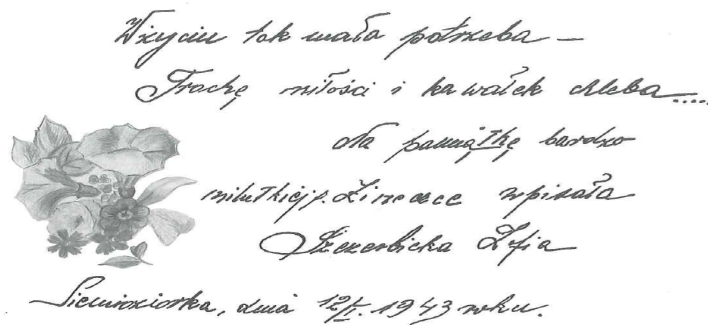 W życiu tak mała potrzeba –
Trochę miłości i kawałek chleba.....
Na pamiątkę bardzo
milutkiej p. wpisała
Szczerbicka Zofia
dnia 12/I. 1943 roku.